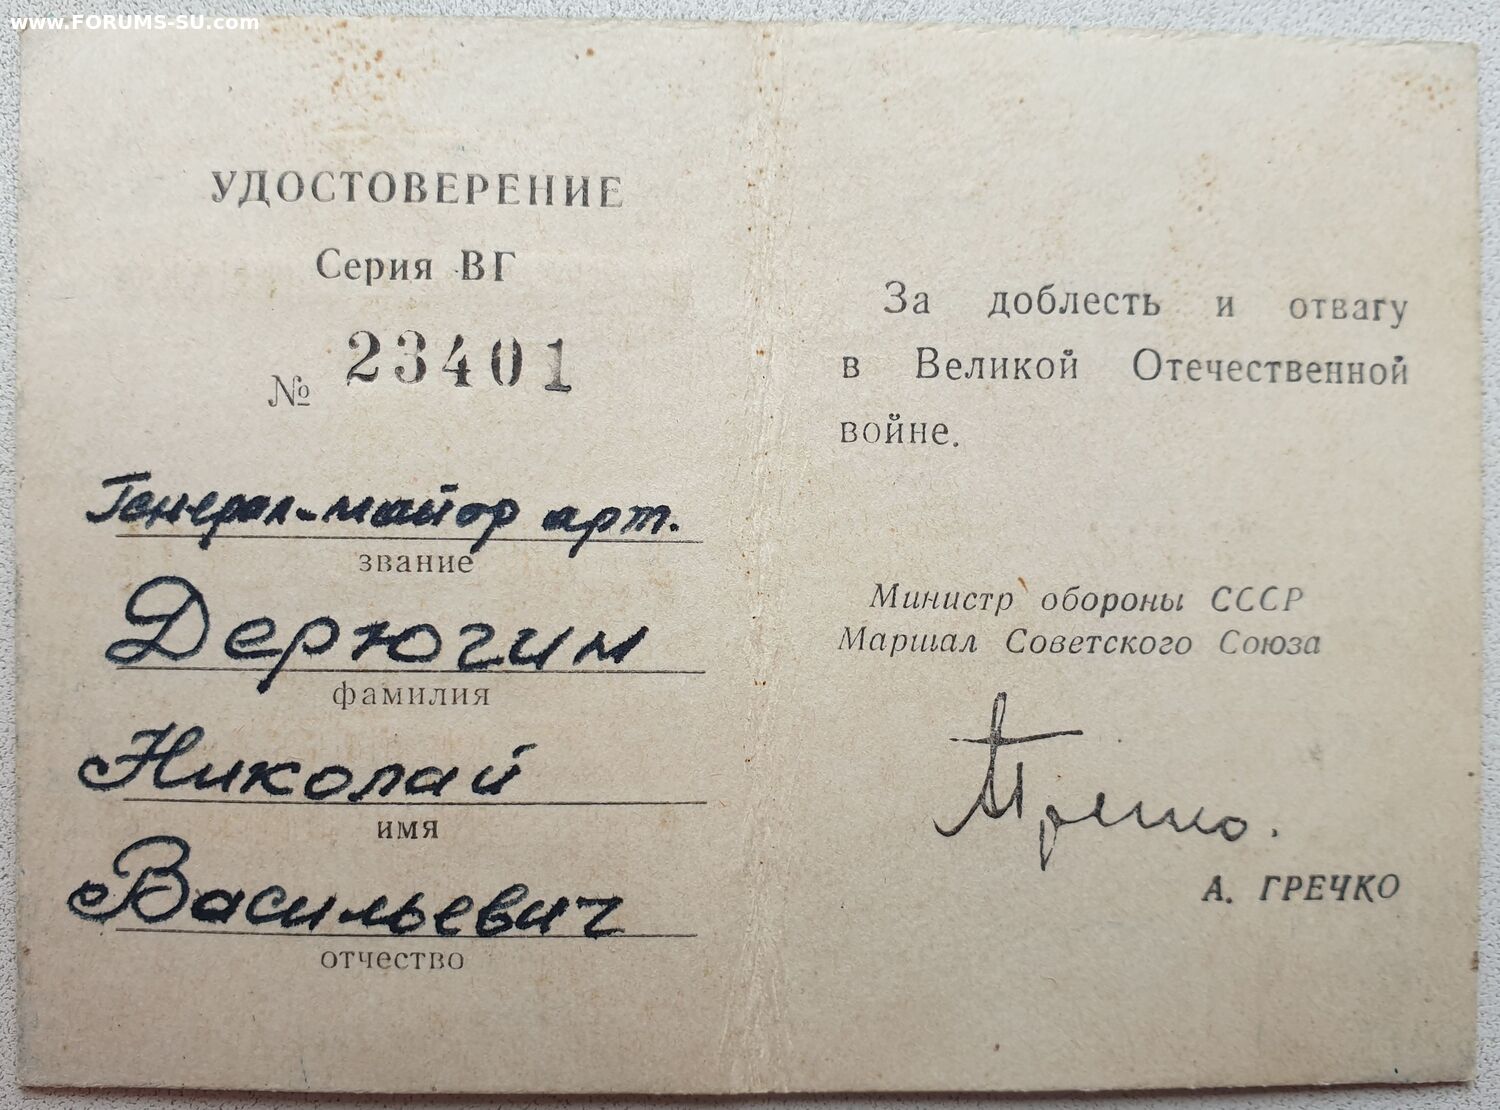 www.FORUMS-SU.com
УДОСТОВЕРЕНИЕ
Серия ВГ
№ 23401
Генерал-майор арт.
звание
Дерюгин
фамилия
Николай
имя
Васильевич
отчество
За доблесть и отвагу
в Великой Отечественной
войне.
Министр обороны СССР
Маршал Советского Союза
АГречко.
А. ГРЕЧКО